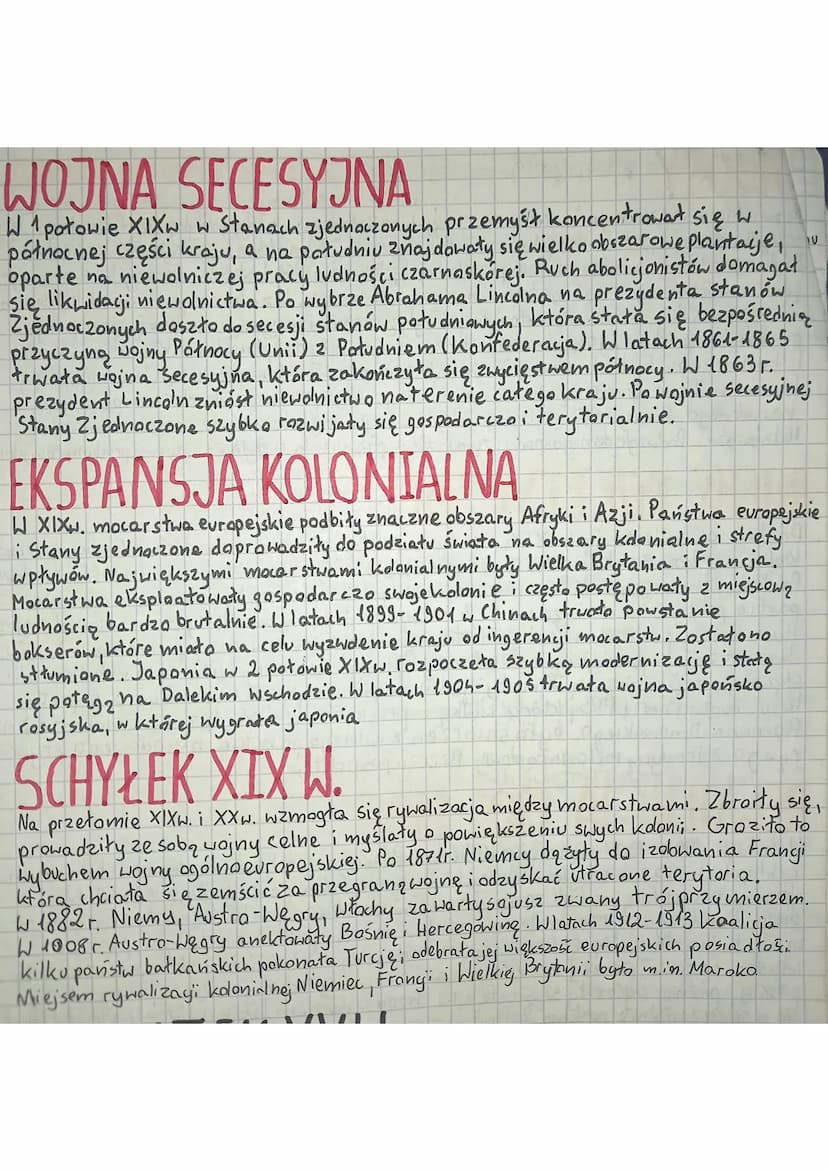 WOJNA SECESYJNA
W 1 połowie XIXw w Stanach zjednoczonych przemysł koncentrował się w
północnej części kraju, a na południu znajdowały się wielkoobszarowe plantacje,
oparte na niewolniczej pracy ludności czarnoskórej. Ruch abolicjonistów domagał
się likwidacji niewolnictwa. Po wybrze Abrahama Lincolna na prezydenta stanów
Zjednoczonych doszło do secesji stanów południowych, która stała się bezpośrednią
przyczyną wojny Północy (Unii) z Południem (Konfederacja). W latach 1861-1865
trwała wojna Secesyjna, która zakończyła się zwycięstwem północy. W 1863r.
prezydent Lincoln zniósł niewolnictwo na terenie całego kraju. Po wojnie secesyjnej
Stany Zjednoczone szybko rozwijały się gospodarczo i terytorialnie.
EKSPANSJA KOLONIALNA
W XIXw. mocarstwa europejskie podbiły znaczne obszary Afryki i Azji. Państwa europejskie
i Stany zjednoczone doprowadziły do podziału świata na obszary kolonialne i strefy
wpływów. Największymi mocarstwami kolonialnymi były Wielka Brytania i Francja.
Mocarstwa eksploatowały gospodarczo swoje kolonie i często postępowały z miejscową
ludnością bardzo brutalnie. W latach 1899-1901 w Chinach trwało powstanie
bokserów, które miało na celu wyzwolenie kraju od ingerencji mocarstw. Zostało ono
stłumione. Japonia w 2 połowie XIXw. rozpoczeła szybką modernizację i stałą
się potęgą na Dalekim wschodzie. W latach 1904-1905 trwała wojna japońsko
rosyjska, w której wygrała japonia
SCHYŁEK XIX W.
Na przełomie XIXw. i XXw. wzmogła się rywalizacja między mocarstwami. Zbroiły się,
prowadziły ze sobą wojny celne i myślały o powiększeniu swych kolonii. Groziło to
wybuchem wojny ogólnoeuropejskiej. Po 1871r. Niemcy dążyły do izolowania Francji
która chciała się zemścić za przegraną wojnę i odzyskać utracone terytoria.
W 1882r. Niemy, Austro-Węgry, włochy zawarły sojusz zwany trójprzymierzem.
W 1008r. Austro-Węgry anektowały Bośnię i Hercegowinę. W latach 1912-1913 koalicja
kilku państw bałkańskich pokonała Turcję i odebrała jej większość europejskich posiadłości.
Miejsem rywalizacji kolonialnej Niemiec, Francji i Wielkiej Brytanii było m.in. Maroko